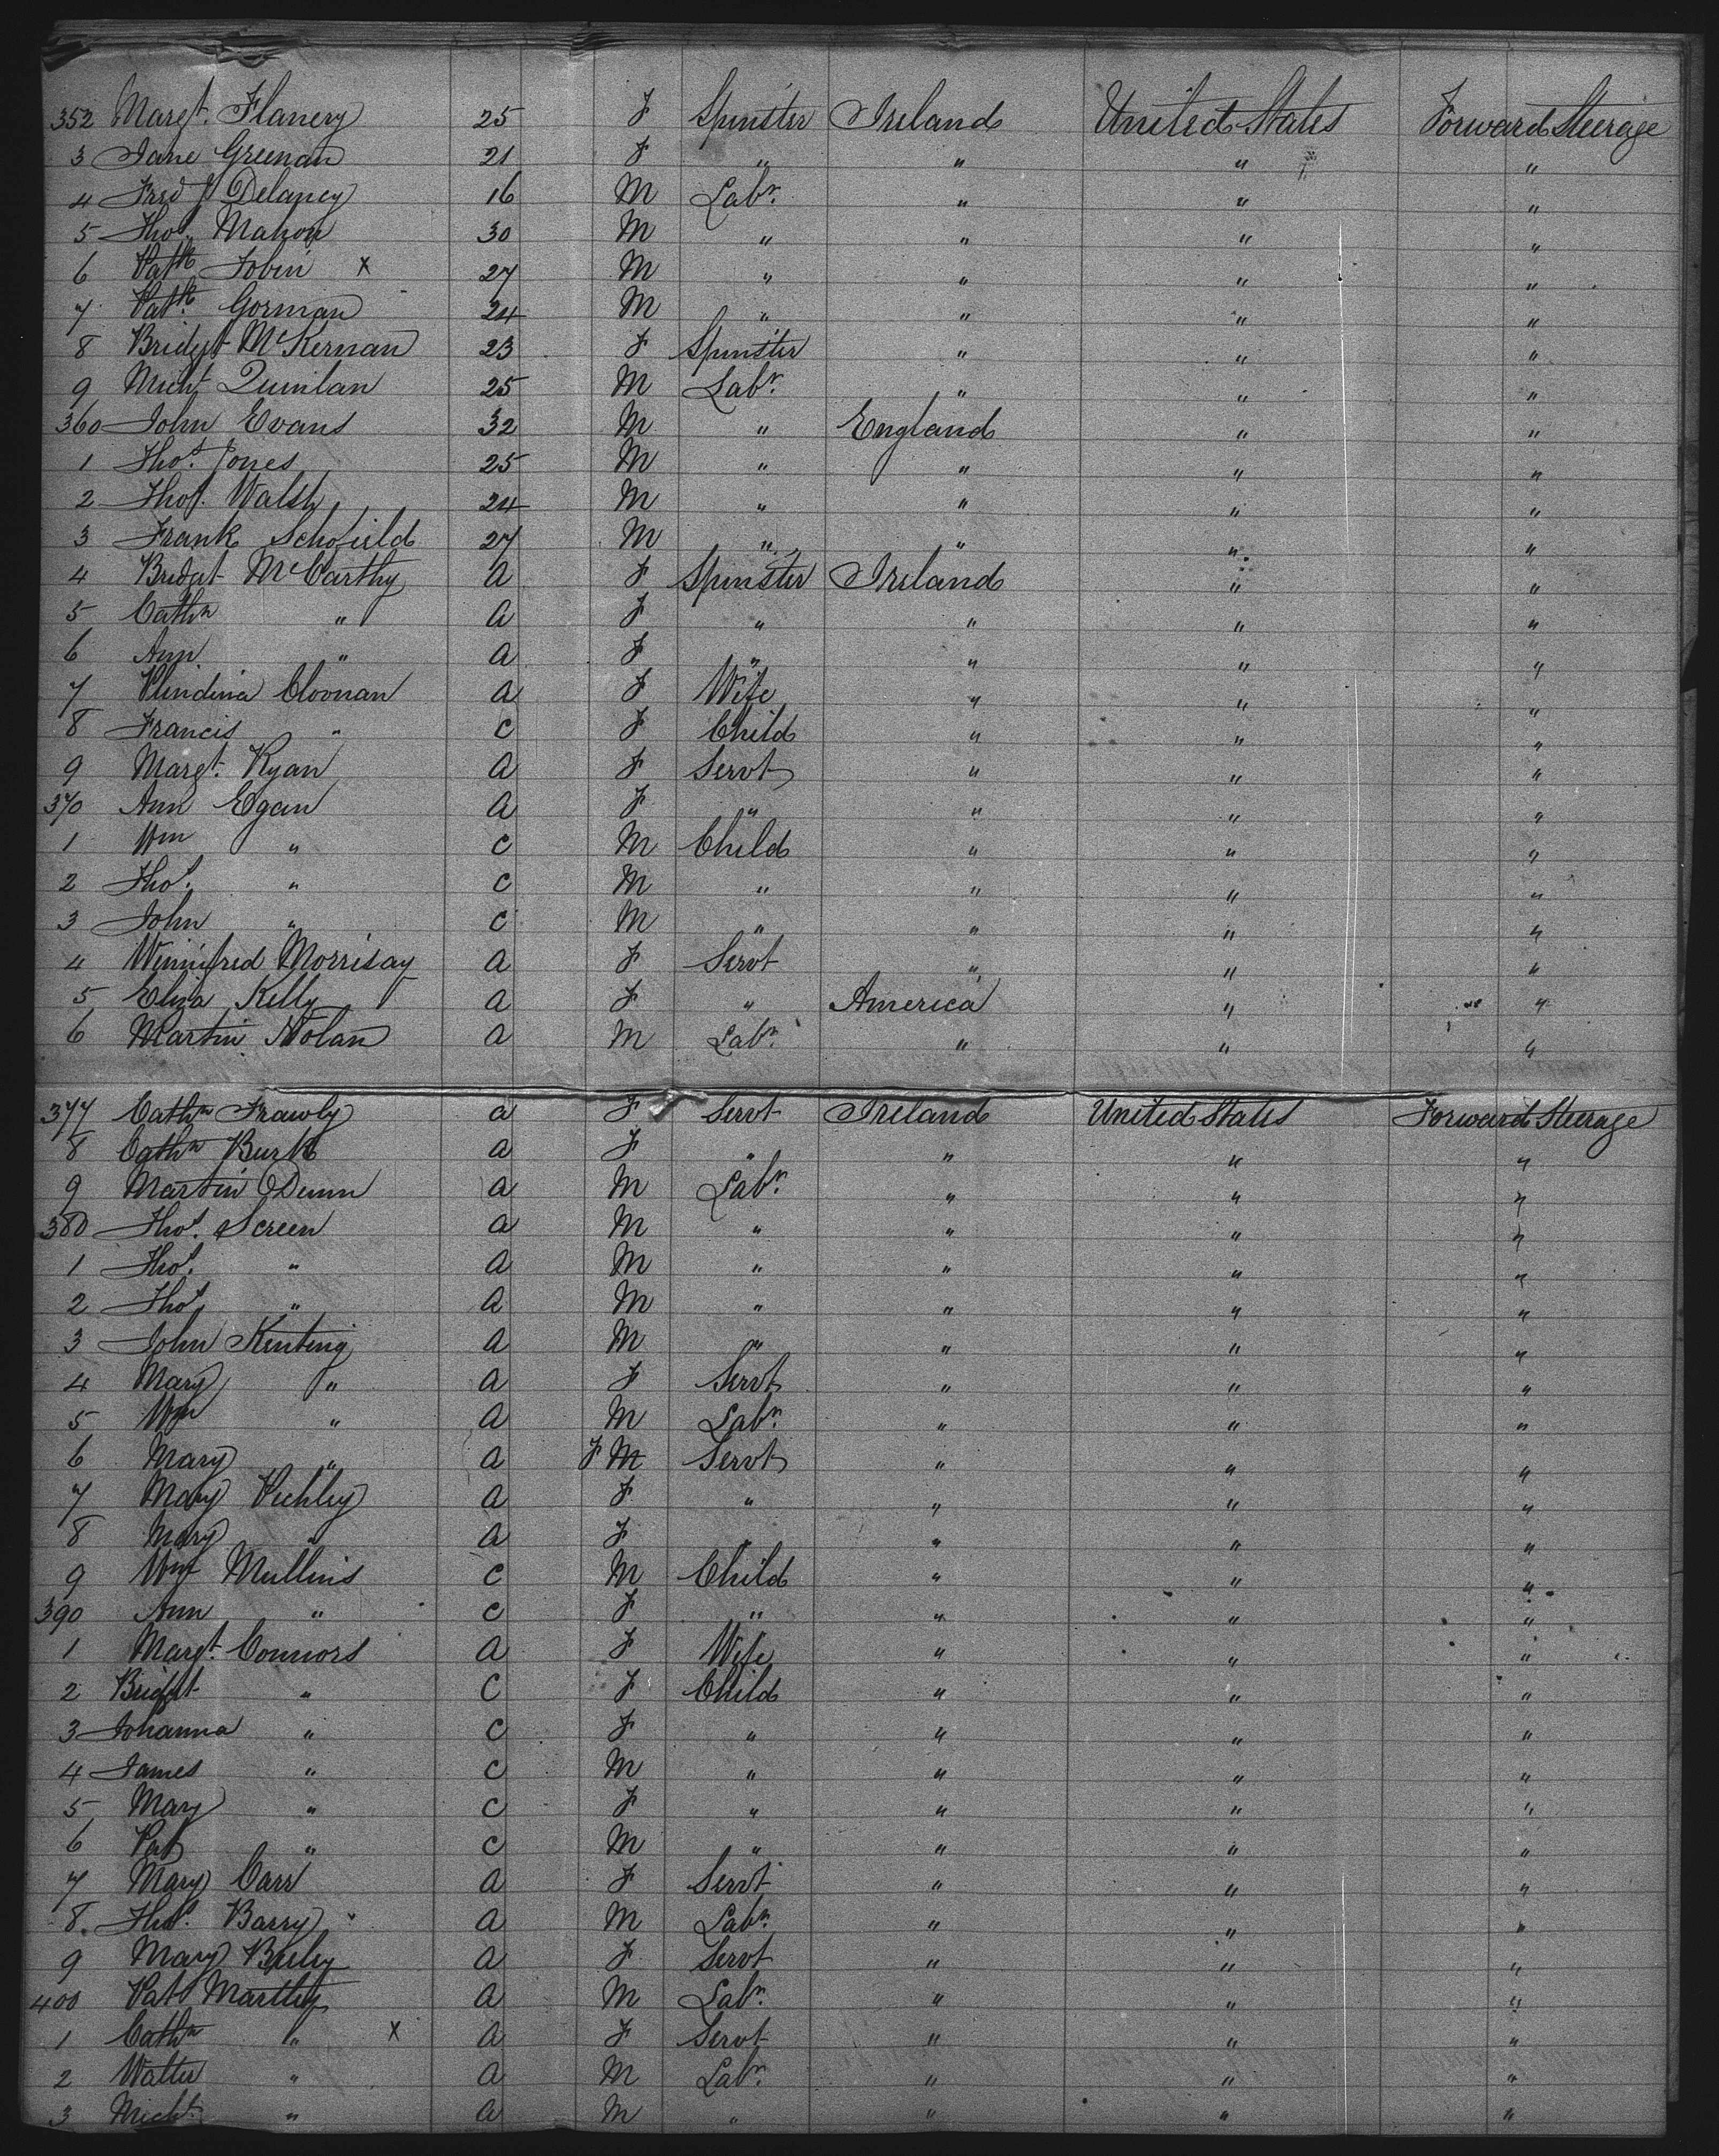 352 Margt. Flanery 25 F Spinster Ireland United States Forward Steerage
3 Jane Greenan 21 F " " " "
4 Fred J Delaney 16 M Labr. " " "
5 Thos. Mahon 30 M " " " "
6 Patk Tobin x 27 M " " " "
7 Patk. Gorman 24 M " " " "
8 Bridgt McKernan 23 F Spinster " " "
9 Michl Quinlan 25 M Labr. " " "
360 John Evans 32 M " England " "
1 Thos. Jones 25 M " " " "
2 Thos. Walsh 24 M " " " "
3 Frank Schofield 27 M " " " "
4 Bridgt McCarthy A F Spinster Ireland " "
5 Cathn " A F " " " "
6 Ann " A F " " " "
7 Cloonan A F Wife " " "
8 Francis " C F Child " " "
9 Margt. Ryan A F Servt " " "
370 Ann Egan A F " " " "
1 Wm " C M Child " " "
2 Thos. " C M " " " "
3 John " C M " " " "
4 Winnifred Morrisay A F Servt " " "
5 Eliza Kelly A F " America " "
6 Martin Nolan A M Labr. " " "
377 Cathn Frawly A F Servt Ireland United States Forward Steerage
8 Cathn Burk A F " " " "
9 Martin ODunn A M Labr. " " "
380 Thos. Screen A M " " " "
1 Thos. " A M " " " "
2 Thos " A M " " " "
3 John Kenting A M " " " "
4 Mary " A F Servt " " "
5 Wm " A M Labr. " " "
6 Mary " A F M Servt " " "
7 Mary A F " " " "
8 Mary " A F " " " "
9 Wm Mullins C M Child " " "
390 Ann " C F " " " "
1 Margt. Connors A F Wife " " "
2 Bridgt " C F Child " " "
3 Johanna " C F " " " "
4 James " C M " " " "
5 Mary " C F " " " "
6 Pat " C M " " " "
7 Mary Carr A F Servt " " "
8. Thos. Barry A M Labr. " " "
9 Mary A F Servt " " "
400 Pat A M Labr. " " "
1 Cathn " x A F Servt " " "
2 Walter " A M Labr. " " "
3 Michl. " A M " " " "